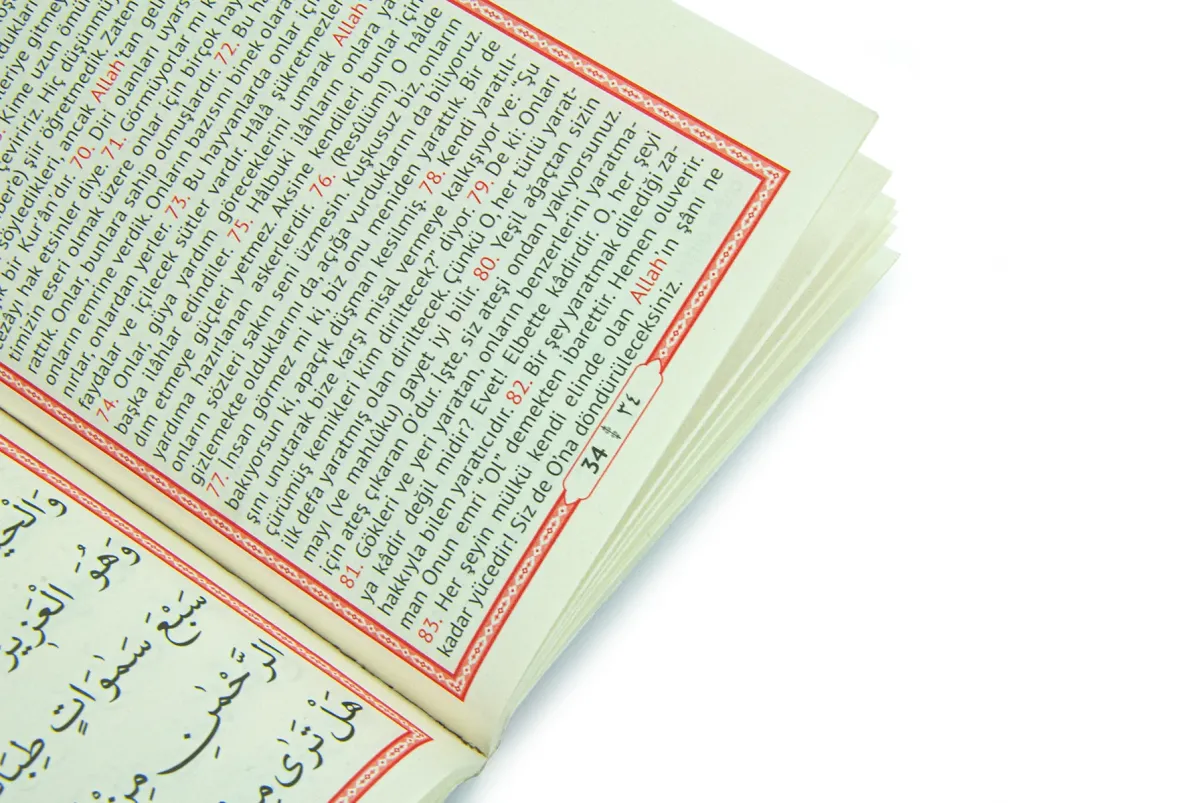 eriye gitmey
Kime uzun ömür
çeviririz. Hiç düşünmü
şiir öğretmedik. Zaten
söyledikleri ancak Allah'tan gel
k bir Kur'ân'dır. 70. Diri olanları uyars
azâyı hak etsinler diye. 71. Görmüyorlar mı k
timizin eseri olmak üzere onlar için birçok hay
rattık. Onlar bunlara sahip olmuşlardır. 72. Bu h
onların emrine verdik. Onların bazısını binek olara
nırlar, onlardan yerler. 73. Bu hayvanlarda onlar iç
faydalar ve içilecek sütler vardır. Hâlâ şükretmezler
74. Onlar, güya yardım göreceklerini umarak Allah
başka ilâhlar edindiler. 75. Hâlbuki ilâhların onlara ya
dım etmeye güçleri yetmez. Aksine kendileri bunlar
yardıma hazırlanan askerlerdir. 76. (Resûlüm!) O hâlde
onların sözleri sakın seni üzmesin. Kuşkusuz biz, onların
gizlemekte olduklarını da, açığa vurduklarını da biliyoruz.
77. İnsan görmez mi ki, biz onu meniden yarattık. Bir de
bakıyorsun ki, apaçık düşman kesilmiş. 78. Kendi yaratılı-
şını unutarak bize karşı misal vermeye kalkışıyor ve: Şu
çürümüş kemikleri kim diriltecek?" diyor. 79. De ki: Onları
ilk defa yaratmış olan diriltecek. Çünkü O, her türlü yarat-
mayı (ve mahlûku) gayet iyi bilir. 80. Yeşil ağaçtan sizin
için ateş çıkaran O'dur. İşte, siz ateşi ondan yakıyorsunuz.
81. Gökleri ve yeri yaratan, onların benzerlerini yaratma-
ya kâdir değil midir? Evet! Elbette kâdirdir. O, her şeyi
hakkıyla bilen yaratıcıdır. 82. Bir şey yaratmak dilediği za-
man Onun emri "OL" demekten ibarettir. Hemen oluverir.
83. Her şeyin mülkü kendi elinde olan Allah'ın şânı ne
kadar yücedir! Siz de O'na döndürüleceksiniz.
34 ٣٤
وَهُوَ الْعَزِيزُ
سَبْعَ سَمٰوَاتٍ طِبَا
الرَّحْمٰنِ مِنْ
هَلْ تَرٰى مِ